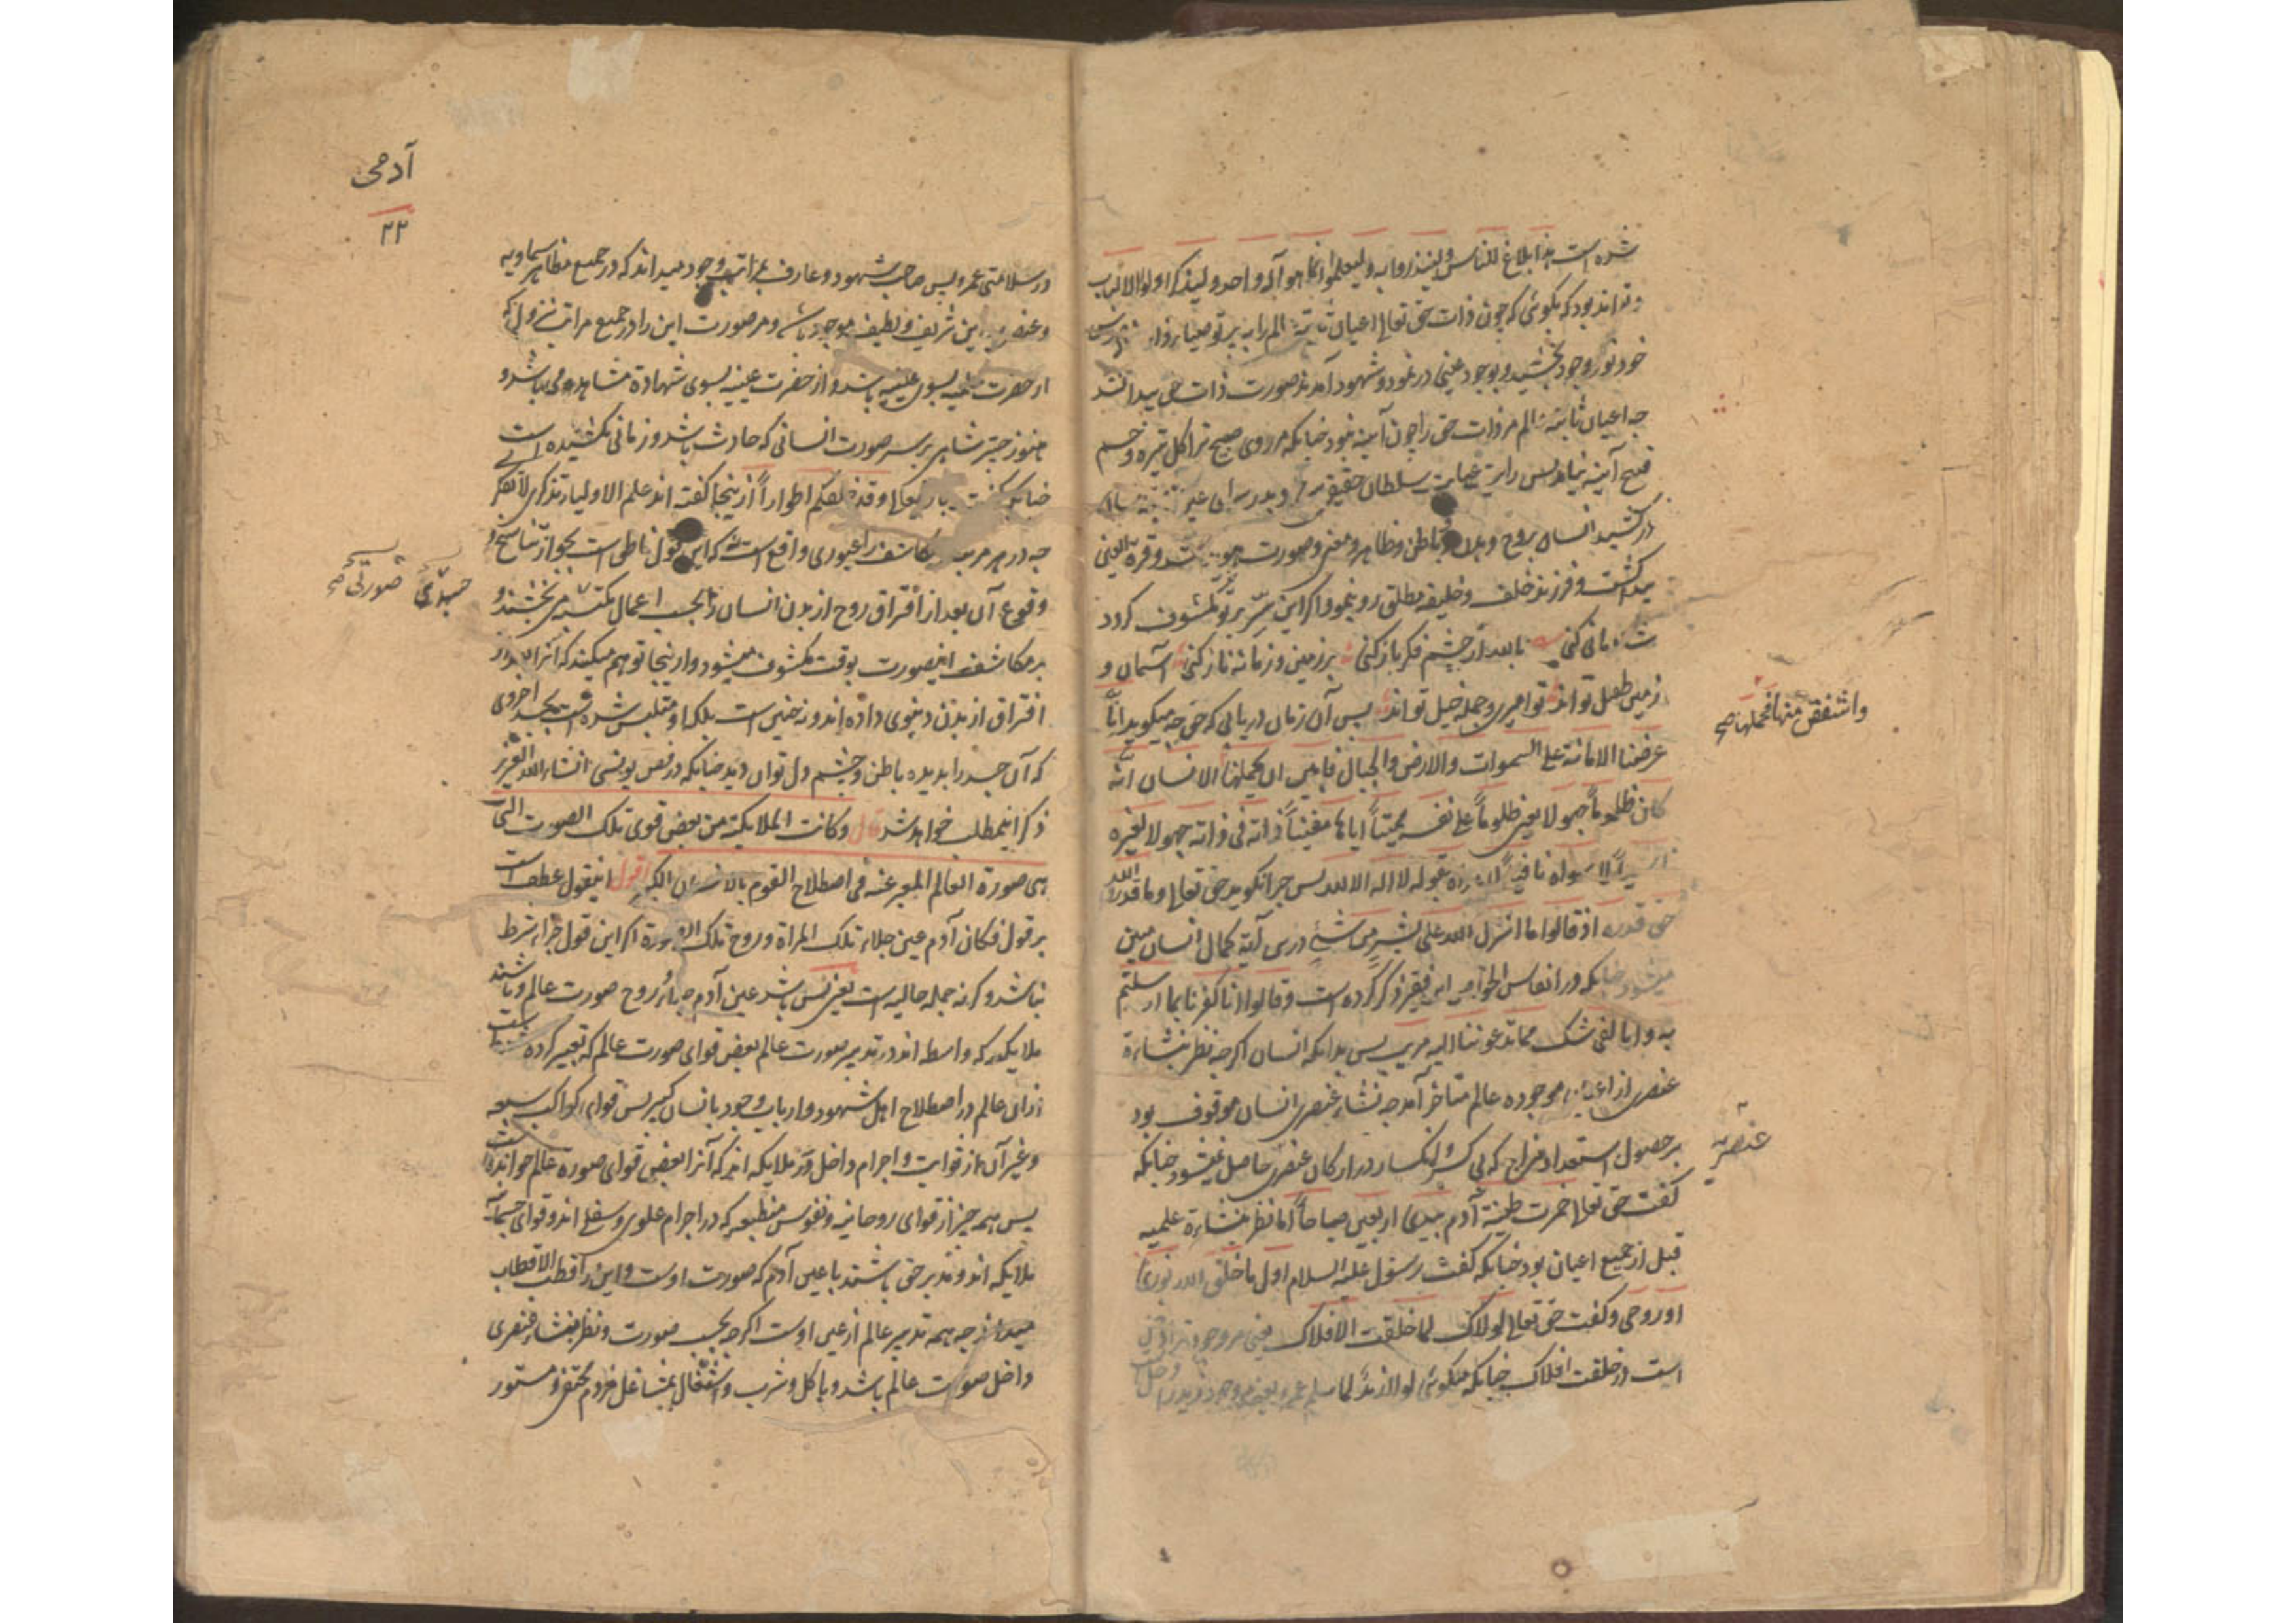 شده است هذا بلاغ للناس ولینذروا به ولیعلموا انما هو آله واحد ولیذکر اولوا الالباب
و تواند بود که بکوئی که چون ذات حق تعالی اعیان ثابته عالم را به پرتو
خود نور وجود بخشید و بوجود عینی در نمود و شهود آمدند صورت ذات حق پیدا شد
چه اعیان ثابته عالم مر ذات حق را چون آینه بود چنانکه مر روی صبیح ترا کل تیره و جسم
قبیح آینه نماید پس رایت عمایت سلطان حقیقی
در کشید انسان بروح و بدن و باطن و ظاهر و معنی و صورت و قرة العینی
پیدا کشت و فرزند خلف و خلیفه مطلق رو نمود و اکر این سر بر تو مکشوف کردد
بعد از چشم فکر باز کنی بر زمین و زمانه ناز کنی آسمان و
زمین طفل تواند تو امیری و جمله خیل تواند پس آن زمان دریابی که حق چه میکوید انا
عرضنا الامانة علی السموات والارض والجبال فابین ان یحملنها الانسان انه
واشفقن منها فحملها صح
کان ظلوما جهولا یعنی ظلوما علی نفسه ممیتا ایاها مفنیا ذاته فی ذاته جهولا لغیره
بقوله لا اله الا الله پس چرا نکوید حق تعالی وما قدروا الله
حق قدره اذ قالوا ما انزل الله علی بشر من شیء درین آیة کمال انسان مبین
میشود چنانکه در انفاس الخواص این فقیر ذکر کرده است وقالوا انا کفرنا بما ارسلتم
به وانا لفی شک مما تدعوننا الیه مریب پس بدانکه انسان اکرچه نظر بنشاءة
عنصری از اعیان موجوده عالم متاخر آمد چه نشاء عنصری انسان موقوف بود
عنصریه
بر حصول استعداد مزاج که بی کسر و انکسار در ارکان عنصری حاصل نمیشود چنانکه
کفت حق تعالی خمرت طینة آدم بیدی اربعین صباحا اما نظر بنشاءة علمیه
قبل از جمیع اعیان بود چنانکه کفت رسول علیه السلام اول ما خلق الله نوری
او روحی و کفت حق تعالی لولاک لما خلقت الافلاک یعنی مر وجود ترا
است در خلقت افلاک چنانکه میکوئی لولا زید لما سلم عمرو یعنی وجود زید را دخل است
آدمی
۲۲
در سلامتی عمرو پس صاحب شهود و عارف بمراتب وجود میداند که در جمیع مظاهر سماویه
و عنصریه این شریف و لطیف موجود باشد و مر صورت این را در جمیع مراتب نزولی که
از حضرت علمیه بسوی عینیه باشد و از حضرت عینیه بسوی شهادة مشاهده می باشد و
هنوز چتر شاهی بر سر صورت انسانی که حادث باشد و زمانی نکشیده است
چنانکه کفت باریتعالی وقد خلقکم اطوارا ازینجا کفته اند علم الاولیاء تذکری لا تفکری
چه در هر مرتبه مکاشف را عبوری واقع است نه که این قول ناطق است بجواز تناسخ و
وقوع آن بعد از افتراق روح از بدن انسان را بحسب اعمال مکتسبه می بخشند و
جسدی صورتی صح
بر مکاشف اینصورت بوقت مکشوف میشود و از ینجا توهم میکنند که آنرا بعد از
افتراق از بدن دنیوی داده اند و نه چنین است بلکه او متلبس شده است بجسد اخروی
که آن جسد را بدیده باطن و چشم دل توان دید چنانکه در فص یونسی انشاء الله العزیز
ذکر اینمطلب خواهد شد قال وکانت الملایکة من بعض قوی تلک الصورت التی
هی صورة العالم المعبر عنه فی اصطلاح القوم بالانسان الکبیر اقول اینقول عطف است
بر قول فکان آدم عین جلاء تلک المراة وروح تلک الصورة اکر این قول جزاء شرط
نباشد و کرنه جمله حالیه است یعنی پس باشد عین آدم جلاء و روح صورت عالم و باشند
ملایکه که واسطه اند در تدبیر صورت عالم بعض قوای صورت عالم که تعبیر کرده شده است
ازان عالم در اصطلاح اهل شهود و ارباب وجود بانسان کبیر پس قوای کواکب سبعه
و غیر آن از ثوابت و اجرام داخل در ملایکه اند که آنرا بعض قوای صوره عالم خوانده است
پس همه چیز از قوای روحانیه و نفوس منطبعه که در اجرام علوی و سفلی اند و قوای جسمانیه
ملایکه اند و مدبر حق باشند با عین آدم که صورت اوست و این را قطب الاقطاب
میدانند چه همه تدبیر عالم از عین اوست اکرچه بحسب صورت و نظر بنشاء عنصری
داخل صورت عالم باشد و باکل و شرب و اشتغال بمشاغل مردم مختفی و مستور